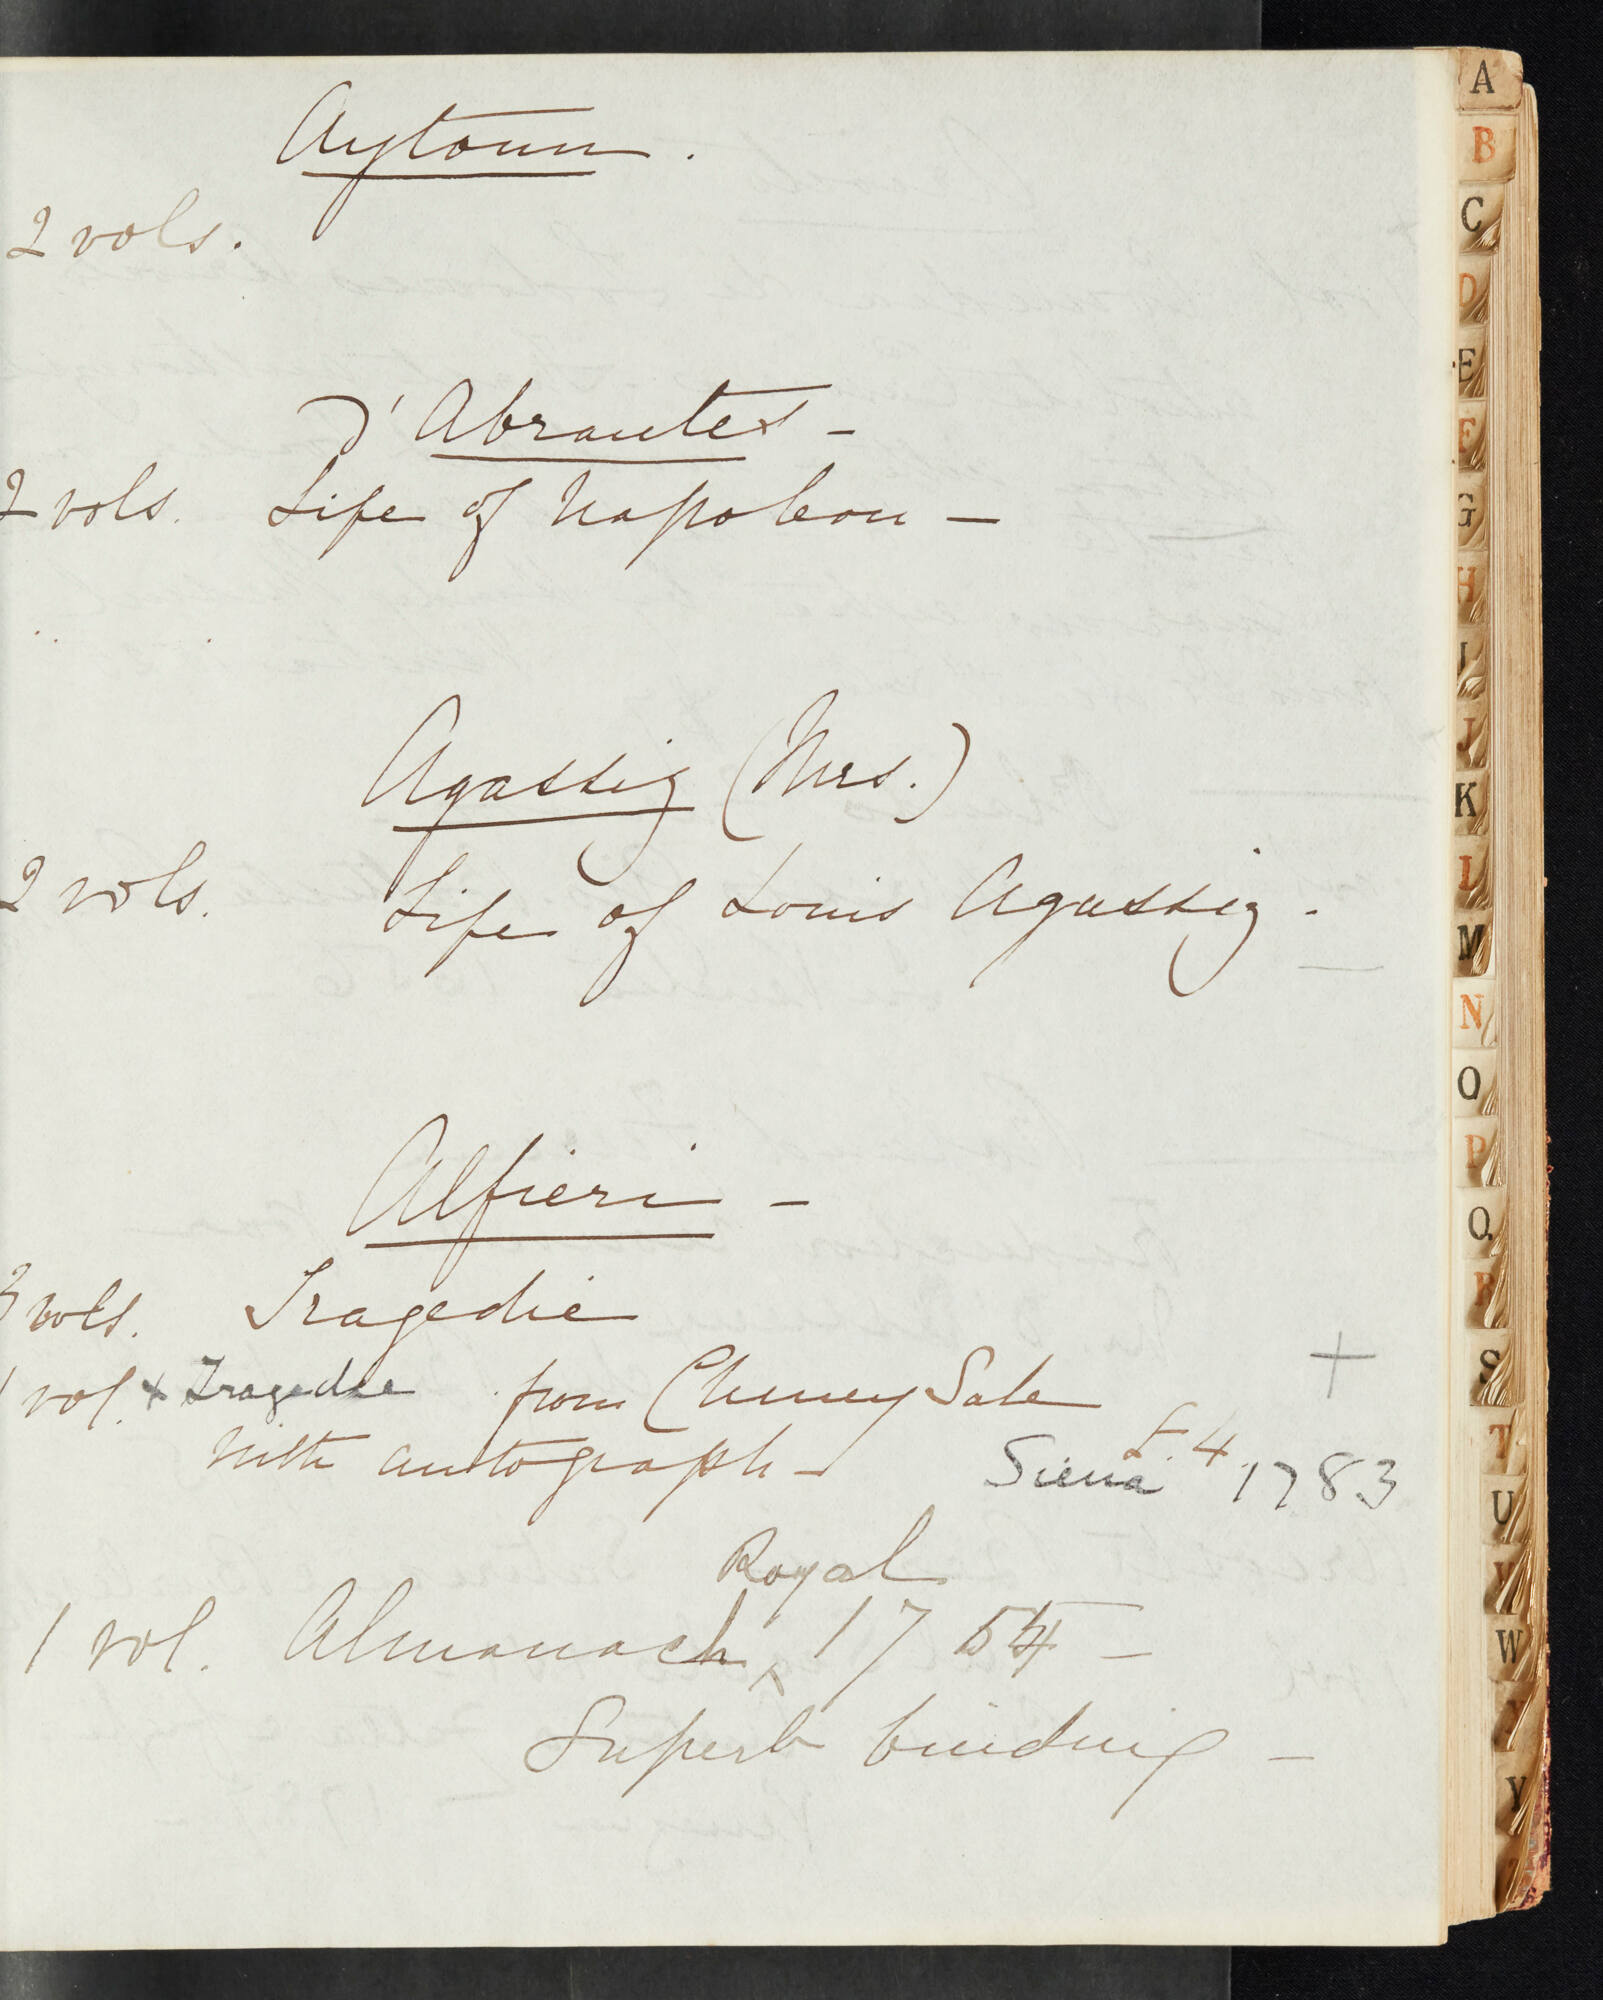 Aytoun.
2 vols.
d'Abrantes -
2 vols. Life of Napoleon -
Agassiz (Mrs.)
2 vols. Life of Louis Agassiz -
Alfieri -
3 vols. Tragedie
1 vol. + Tragedie from Cheney Sale +
With autograph - £.4.
Siena 1783
Royal
1 vol. Almanach ^ 1754 -
Superb binding -
A
B
C
D
E
F
G
H
I
J
K
L
M
N
O
P
Q
R
S
T
U
V
W
Y